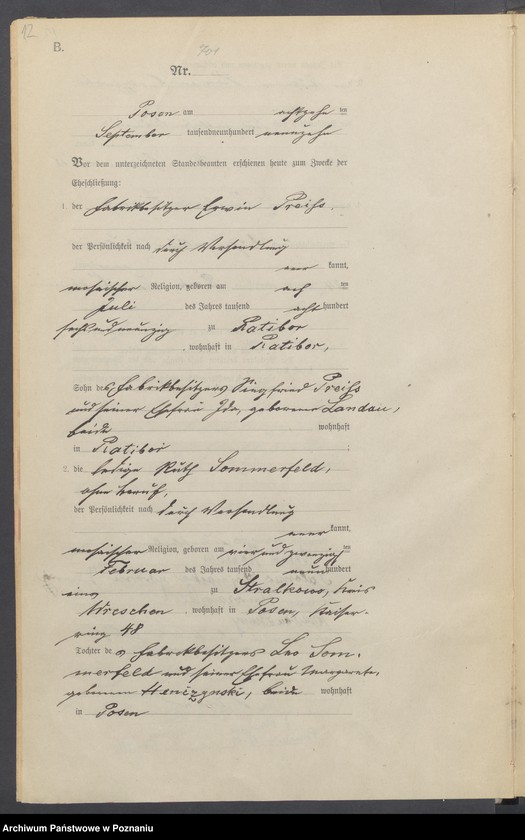 12
B.
701
Nr.
Posen am achtzehn ten
September tausendneunhundert neunzehn
Vor dem unterzeichneten Standesbeamten erschienen heute zum Zwecke der
Eheschließung:
1. der Fabrikbesitzer Erwin Preiss
der Persönlichkeit nach durch Verhandlung
kannt,
mosaischer Religion, geboren am ten
Juli des Jahres tausend acht hundert
sechsundneunzig zu Ratibor
, wohnhaft in Ratibor,
Sohn des Fabrikbesitzers Siegfried Preiss
und seiner Ehefrau Ida, geborene Landau,
beide wohnhaft
in Ratibor ;
2. die ledige Ruth Sommerfeld,
ohne Beruf,
der Persönlichkeit nach durch Verhandlung
kannt,
mosaischer Religion, geboren am vierundzwanzig ten
Februar des Jahres tausend neun hundert
eins zu Stralkowo, Kreis
Wreschen, wohnhaft in Posen, Kaiser-
ring 48
Tochter des Fabrikbesitzers Leo Som-
merfeld und seiner Ehefrau Margarete,
geborenen, beide wohnhaft
in Posen
Archiwum Państwowe w Poznaniu